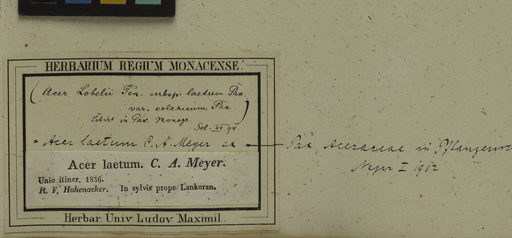 HERBARIUM REGIUM MONACENSE.
(Acer Lobelii Ten. subsp. laetum Pax
var. colchicum Pax
in Pax Monogr.
= Acer laetum C. A. Meyer ex — Pax, Aceraceae in
1902
Acer laetum. C. A. Meyer.
Unio itiner. 1836.
R. F. Hohenacker. In sylvis prope Lankoran.
Herbar. Univ. Ludov. Maximil.